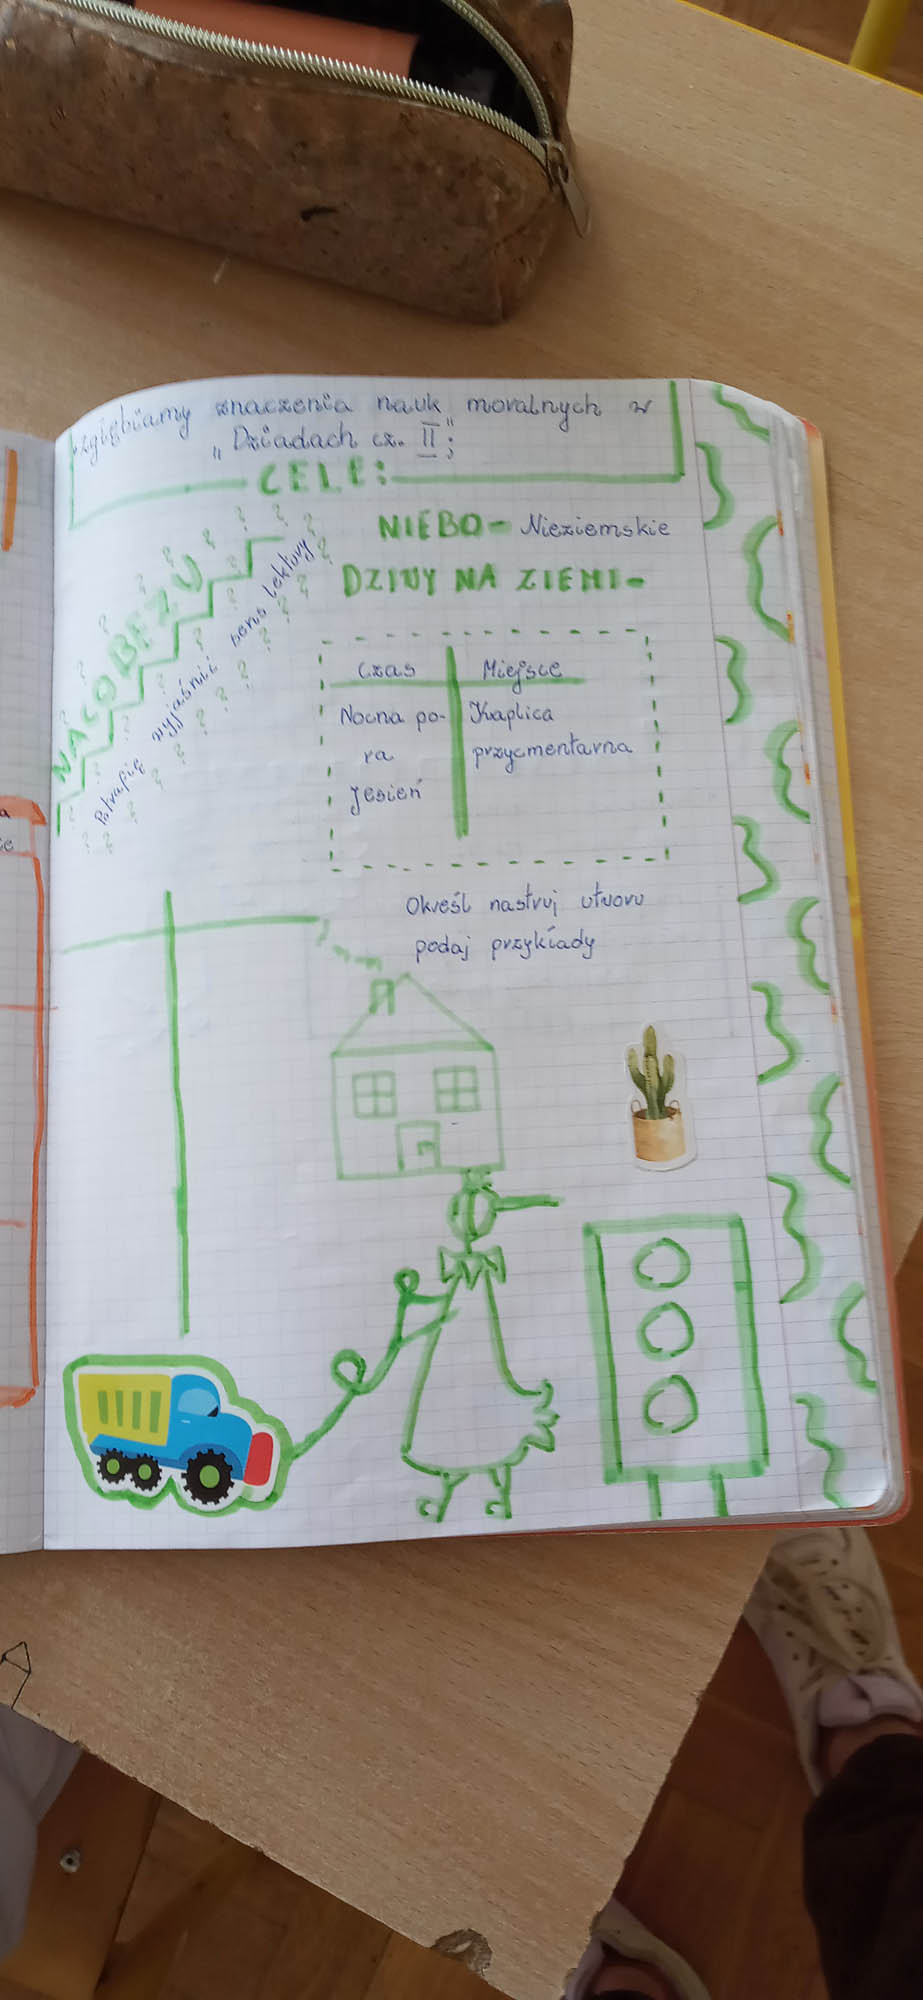 zgłębiamy znaczenia nauk moralnych w
„Dziadach cz. II";
CELE:
NACOBEZU
Potrafię wyjaśnić sens lektury
NIEBO- Nieziemskie
DZIWY NA ZIEMI-
Czas Miejsce
Nocna po- Kaplica
ra przycmentarna
Jesień
Określ nastruj utworu
podaj przykłady